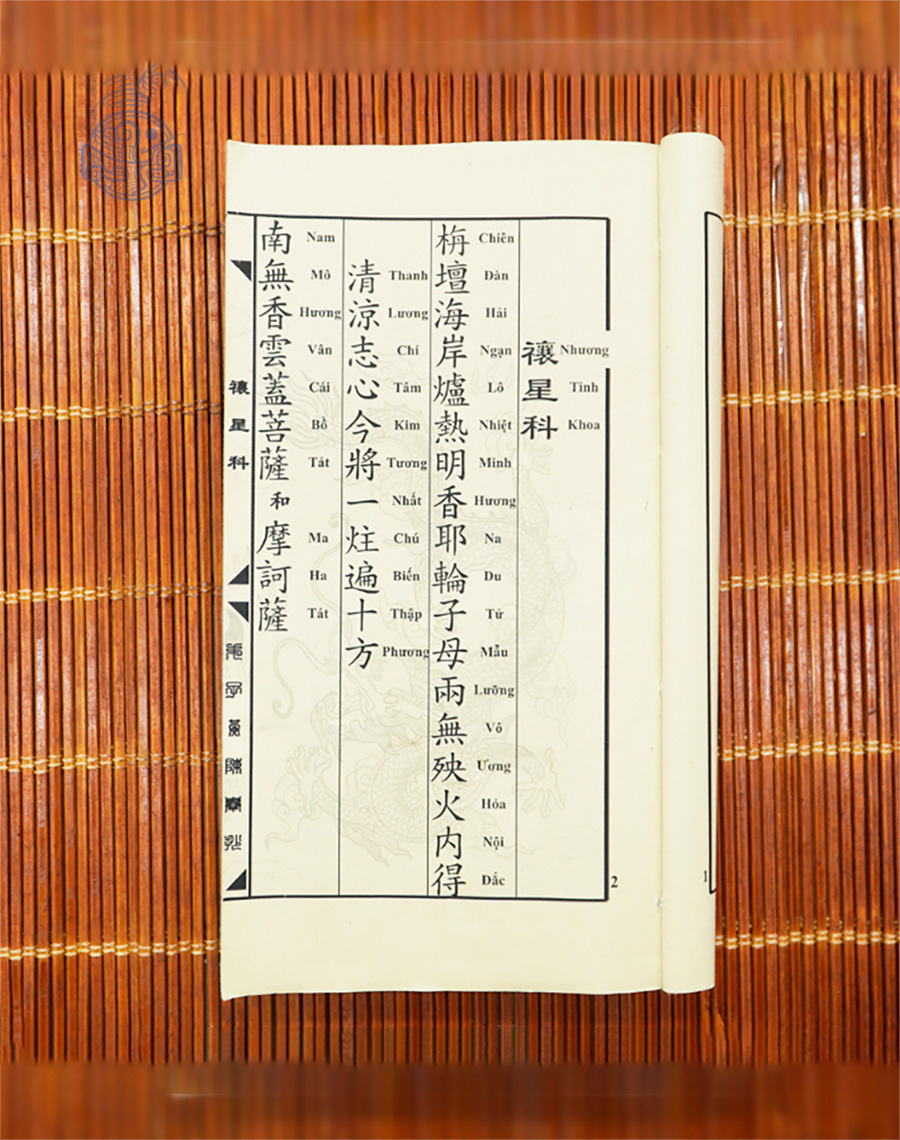 1
禳星科
Nhương Tinh Khoa
栴壇海岸爐熱明香耶輪子母兩無殃火内得
Chiên Đàn Hải Ngạn Lô Nhiệt Minh Hương Na Du Tử Mẫu Lưỡng Vô Ương Hỏa Nội Đắc
清涼志心今將一炷遍十方
Thanh Lương Chí Tâm Kim Tương Nhất Chú Biến Thập Phương
南無香雲蓋菩薩和摩訶薩
Nam Mô Hương Vân Cái Bồ Tát Ma Ha Tát
禳星科
2